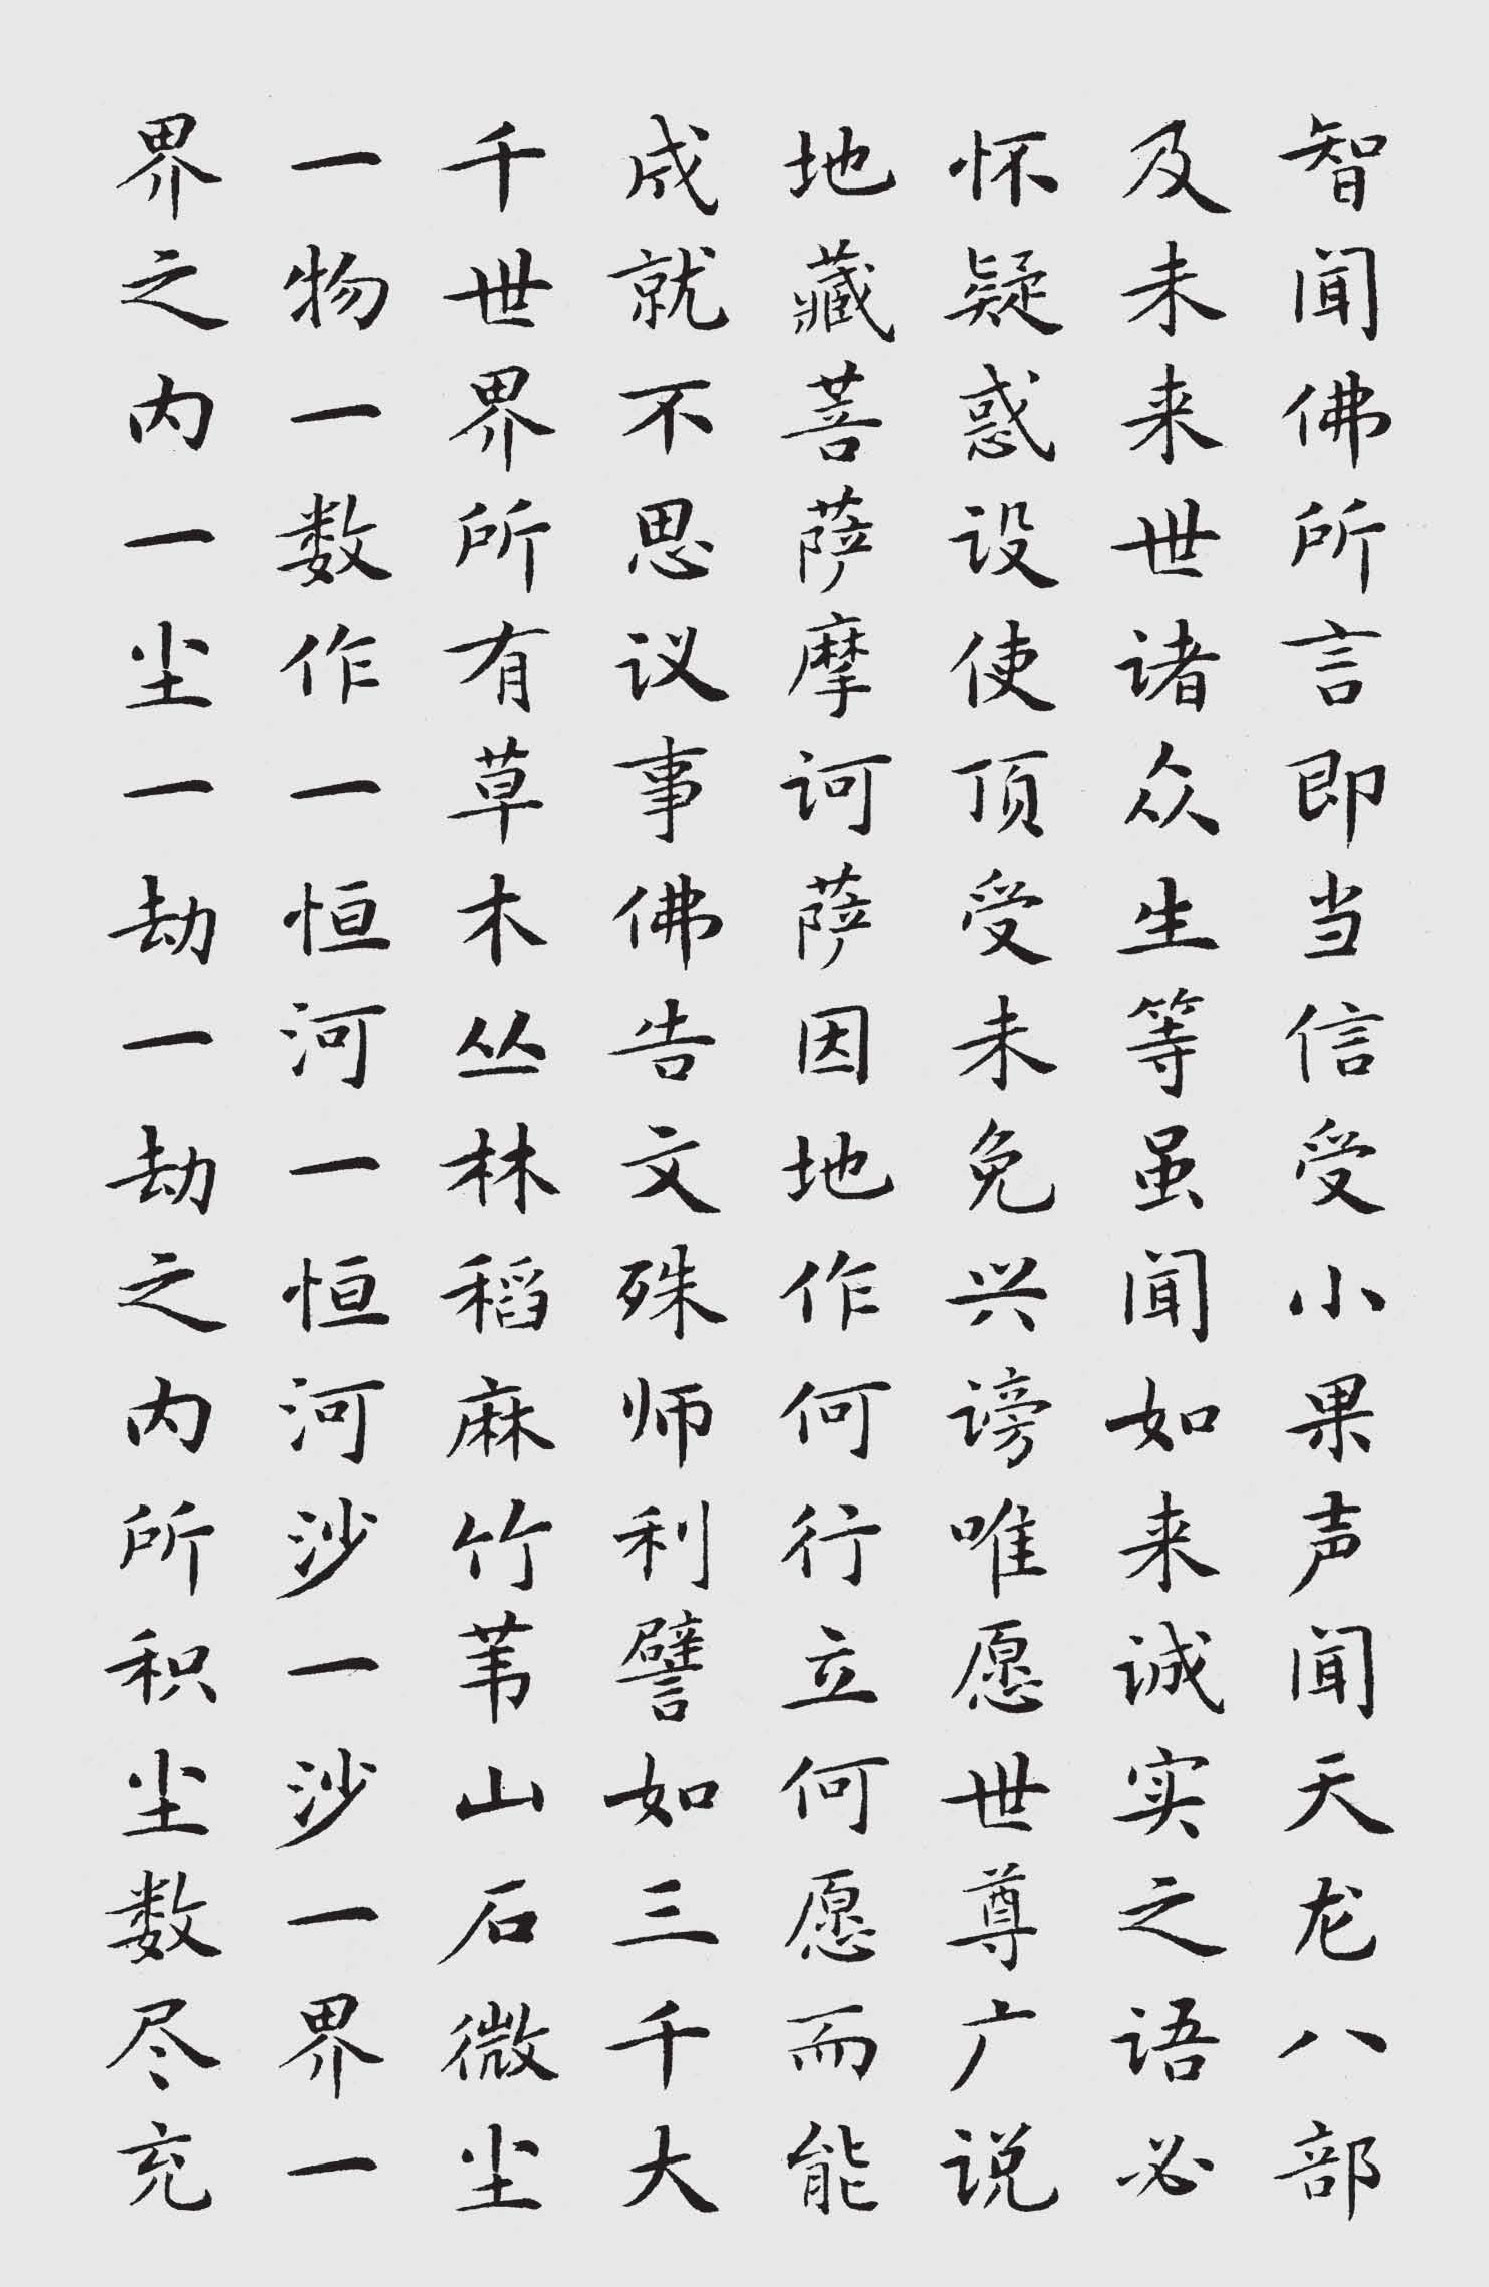 智闻佛所言即当信受小果声闻天龙八部
及未来世诸众生等虽闻如来诚实之语必
怀疑惑设使顶受未免兴谤唯愿世尊广说
地藏菩萨摩诃萨因地作何行立何愿而能
成就不思议事佛告文殊师利譬如三千大
千世界所有草木丛林稻麻竹苇山石微尘
一物一数作一恒河一恒河沙一沙一界一
界之内一尘一劫一劫之内所积尘数尽充